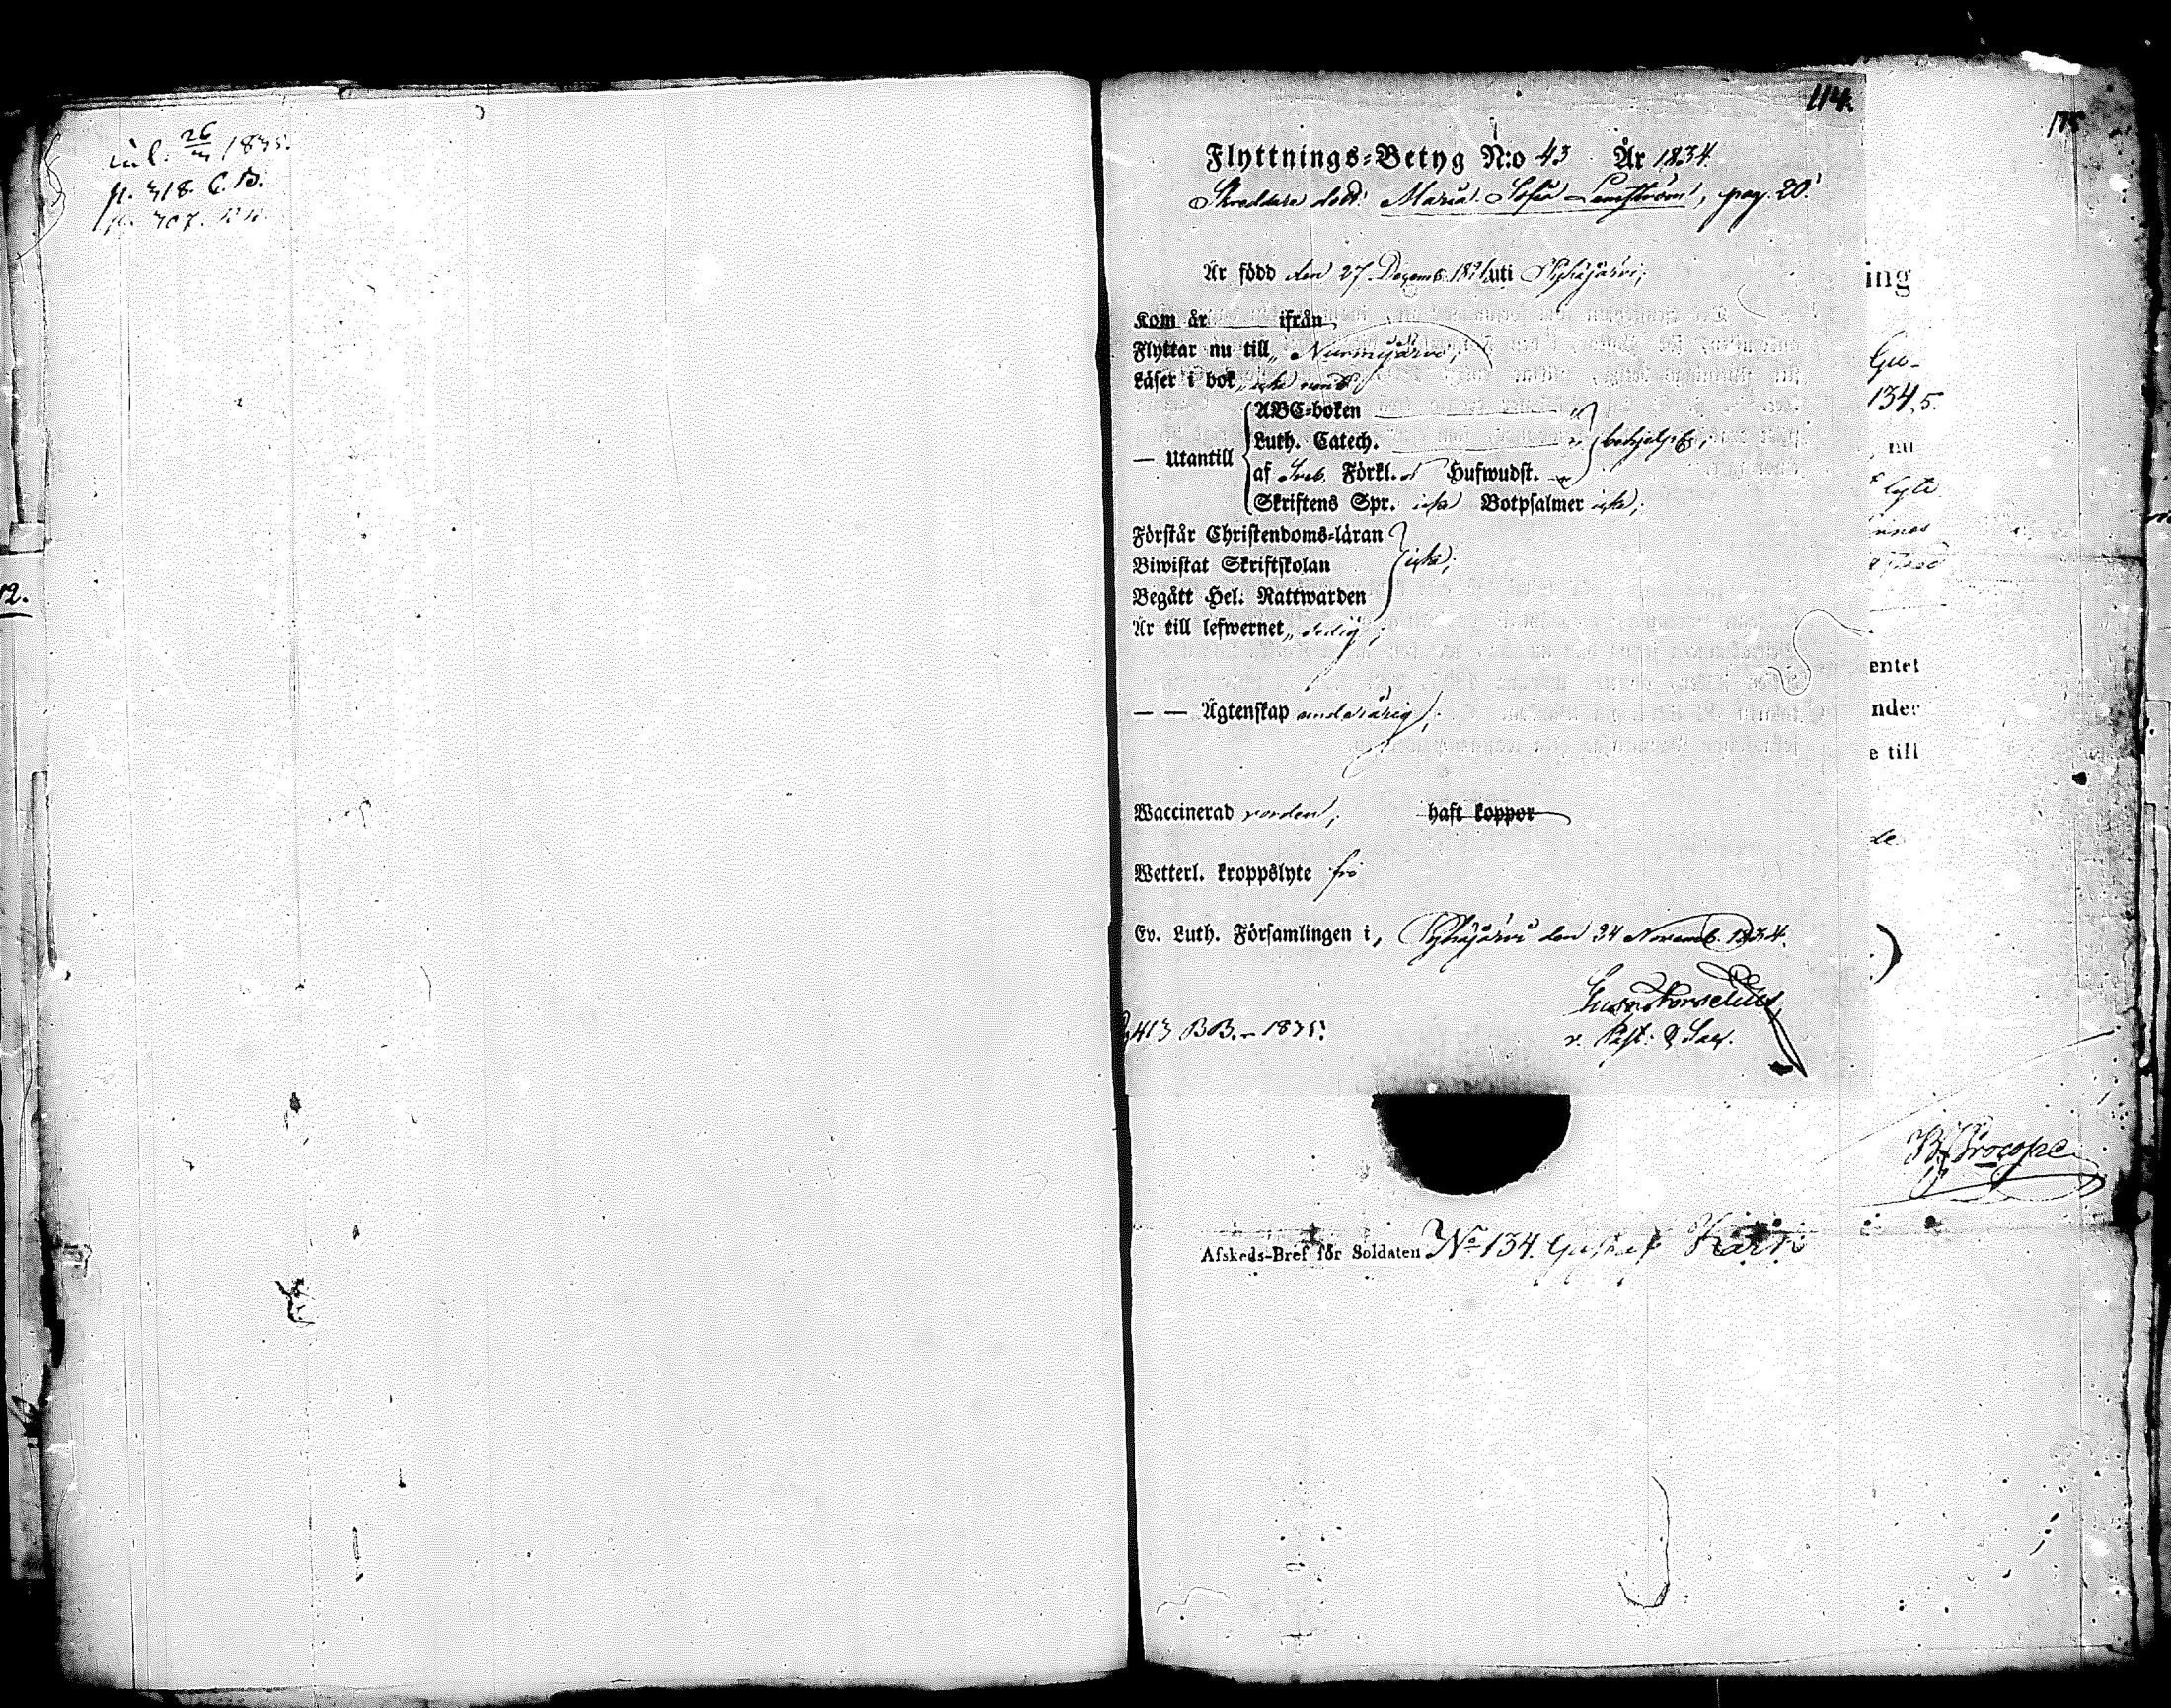 inl. 26/3 1835.
p. 318. C.B.
p. 307.
12.
114.
Flyttnings-Betyg N:o 43 År 1834.
Skreddare dott: Maria Sofia Lemström, pag. 20.
Är född den 27 Decemb. 1821 uti Pyhäjärvi;
Kom år ifrån
Flyttar nu till, Nurmijärvi;
Läser i bok,
— Utantill
ABC-boken
Luth. Catech.
af Sveb. Förkl. Hufwudst.
behjelpl.;
Skriftens Spr. icke Botpsalmer icke;
Förstår Christendoms-läran
Biwistat Skriftskolan
Begått Hel. Nattwarden
icke;
Är till lefwernet, sedig;
— — Ägtenskap underårig;
Waccinerad vorden; haft koppor
Wetterl. kroppslyte fri
Ev. Luth. Församlingen i, Pyhäjärvi den 24 Novemb. 1834.
v. Past: & Sac.
413 BB. – 1835.
ing
Gu-
134, 5.
nu
lyte
entet
nder
e till
de
Procopé
Afskeds-Bref för Soldaten No 134. Gustaf